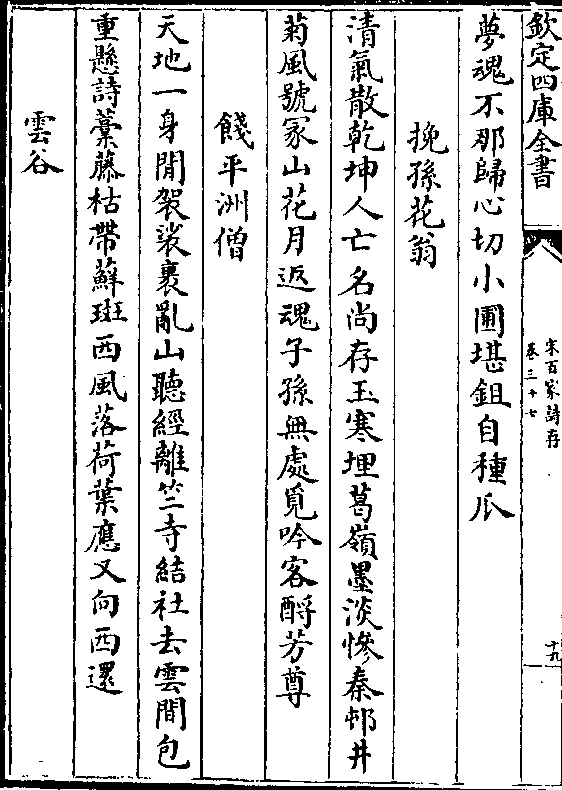 欽定四庫全書
宋百家詩存
卷三十七
十九
夢魂不那歸心切小圃堪鉏自種瓜
挽孫花翁
清氣散乾坤人亡名尚存玉寒埋葛嶺墨淡慘秦邨井
菊風號冢山花月返魂子孫無處覓吟客酹芳尊
餞平洲僧
天地一身閒袈裟裹亂山聽經離竺寺結社去雲間包
重懸詩藁藤枯帶蘚斑西風落荷葉應又向西還
雲谷